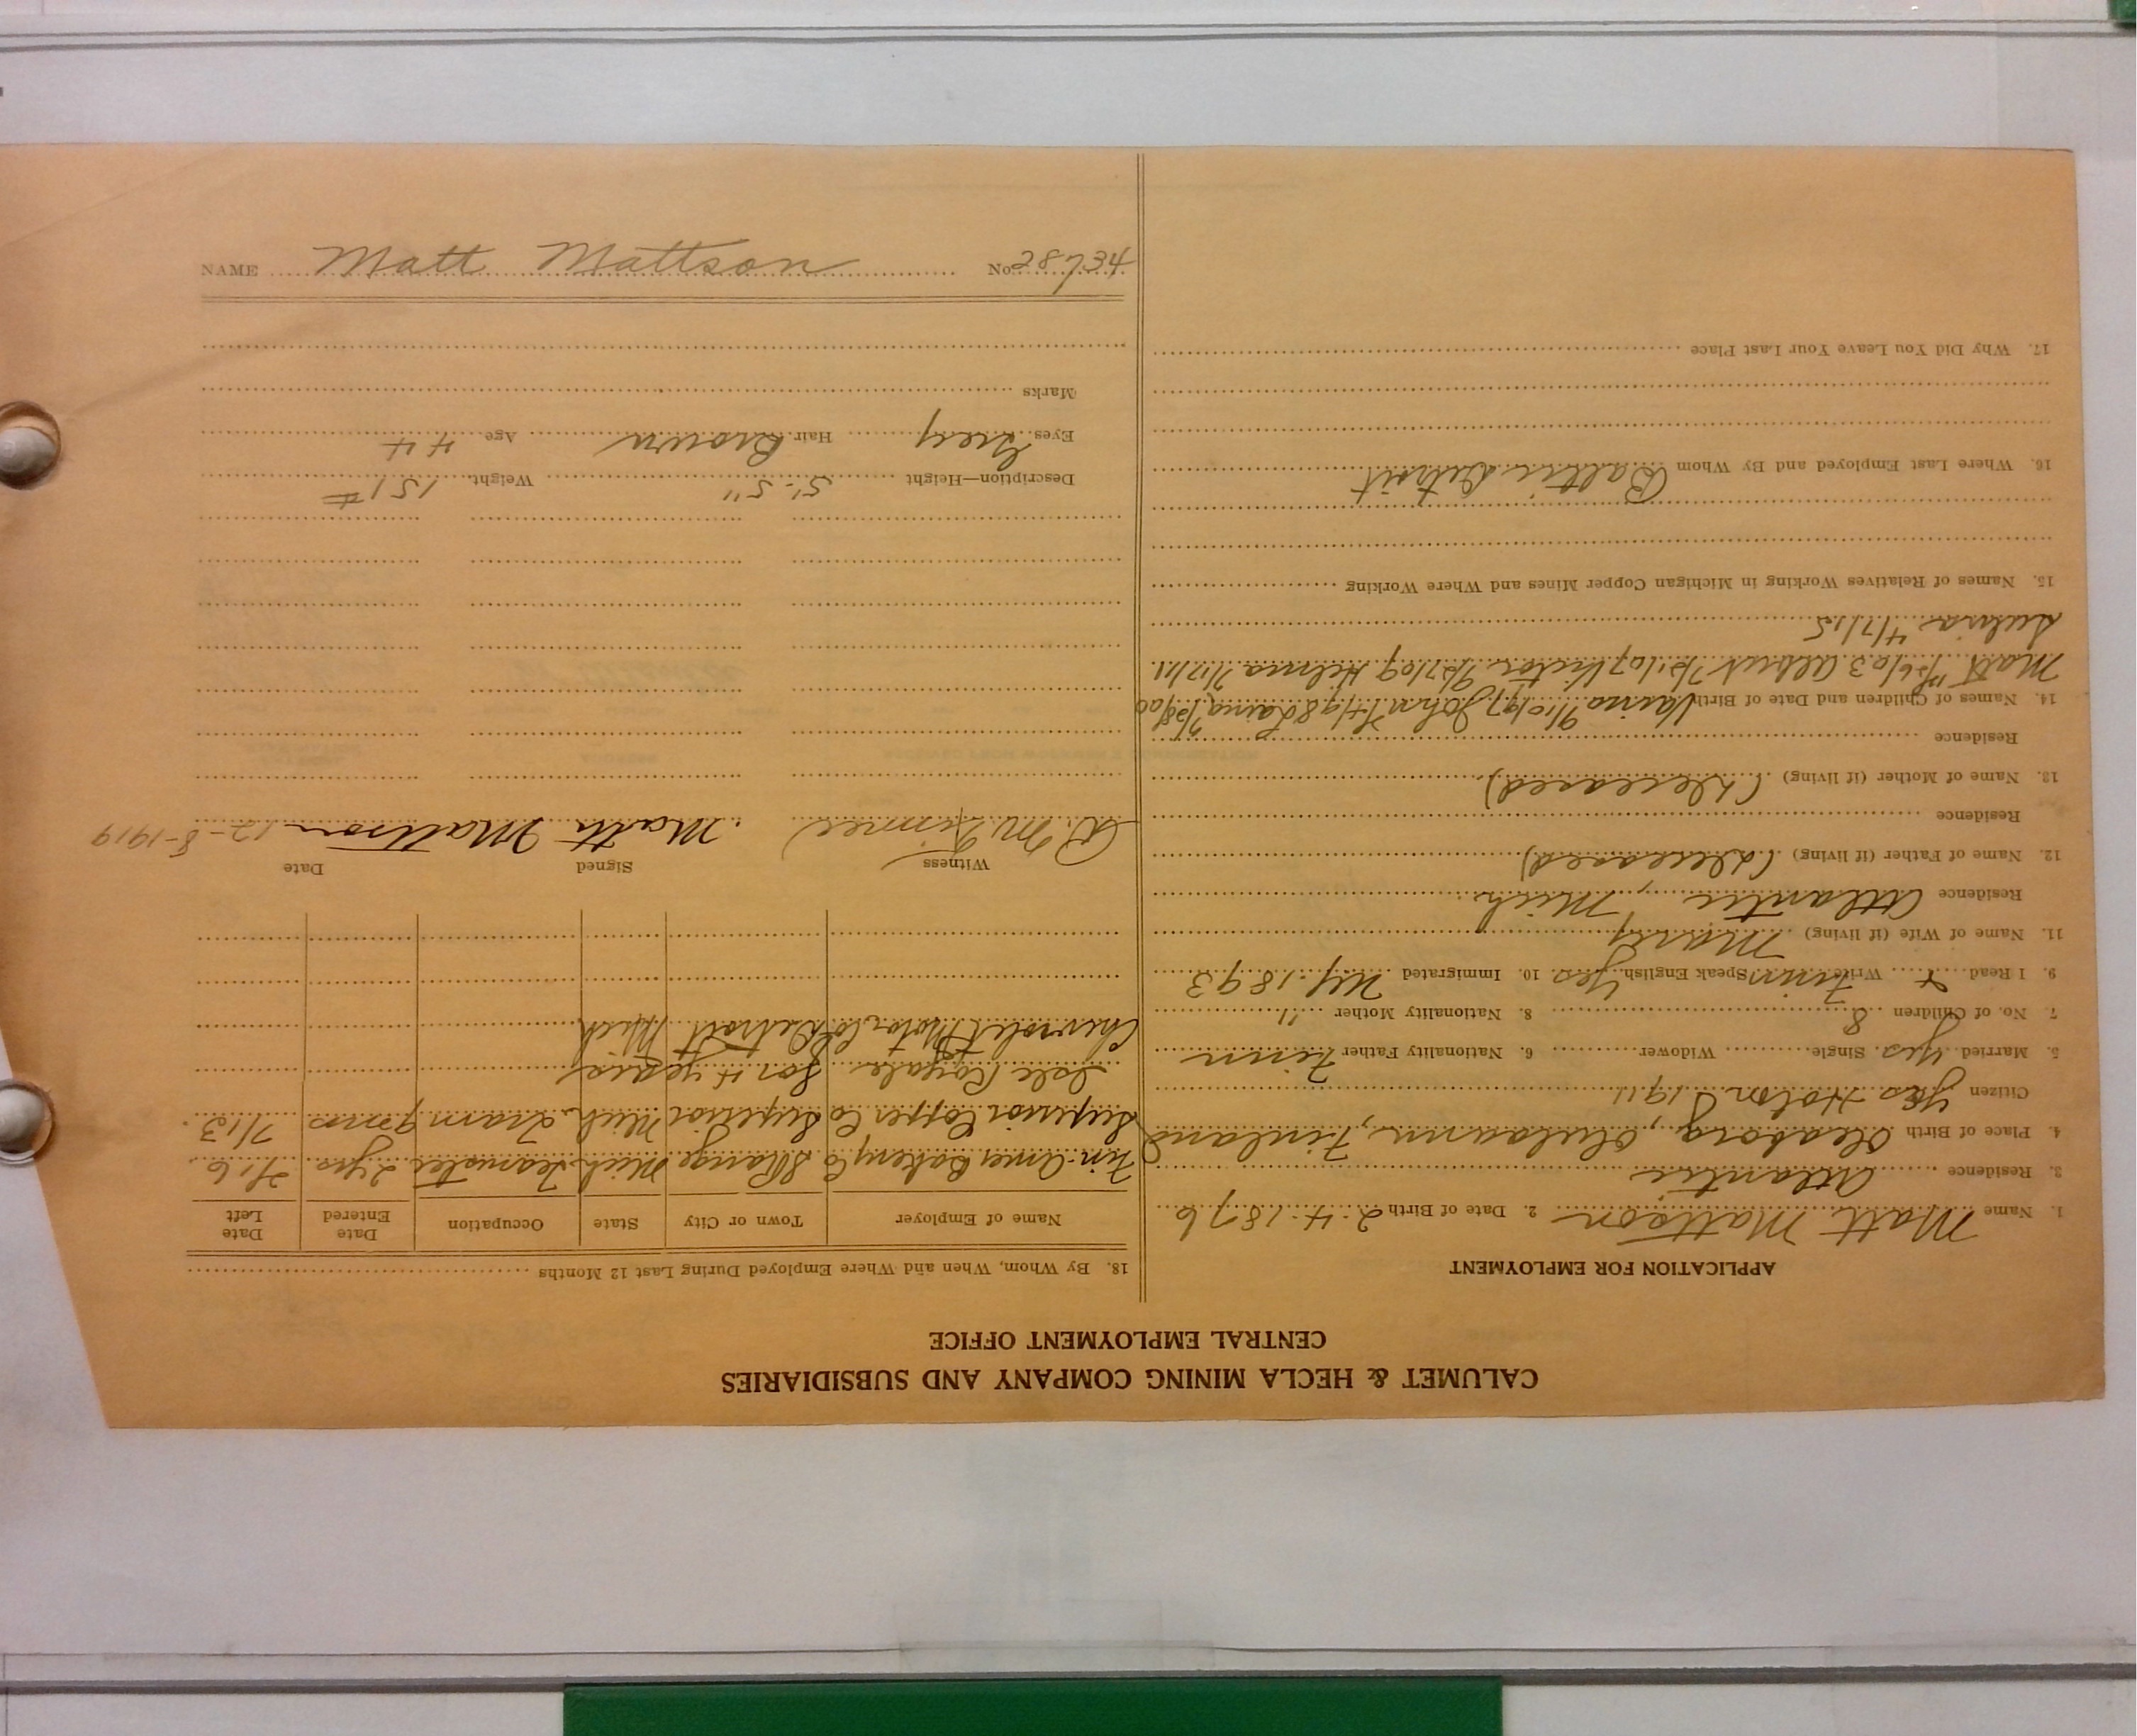 CALUMET & HECLA MINING COMPANY AND SUBSIDIARIES
CENTRAL EMPLOYMENT OFFICE
APPLICATION FOR EMPLOYMENT
1. Name Matt Mattson 2. Date of Birth 2-4-1876
3. Residence Atlantic
4. Place of Birth Oleaborg, Oulaann, Finland
Citizen Yes Hoton 1911
5. Married Yes. Single Widower 6. Nationality Father Finn
7. No. of Children 8 8. Nationality Mother "
9. I Read & Write Finn Speak English Yes 10. Immigrated NY. 1893
11. Name of Wife (if living) Mary
Residence Atlantic, Mich.
12. Name of Father (if living) (deceased)
Residence
13. Name of Mother (if living) (deceased)
Residence
14. Names of Children and Date of Birth Vaino 9/10/97 John Laina 7/28/00
Matt 11/26/03 Albert 7/21/07 Victor 9/27/09 Helmia 7/17/11
4/7/15
15. Names of Relatives Working in Michigan Copper Mines and Where Working
16. Where Last Employed and By Whom Baltic Detroit
17. Why Did You Leave Your Last Place
18. By Whom, When and Where Employed During Last 12 Months
Name of Employer Town or City State Occupation Date Entered Date Left
Fin-Amer Bakery Co S Range Mich Teamster 2 yrs
Superior Copper Co Superior Mich. Tram 9 mos 7/13.
Isle Royale for 4 years
Chevrolet Motor Co Detroit Mich
Witness Signed Date
Matt Mattson 12-8-1919
Description—Height 5'-5" Weight 151#
Eyes Grey Hair Brown Age 44
Marks
NAME Matt Mattson No. 28734